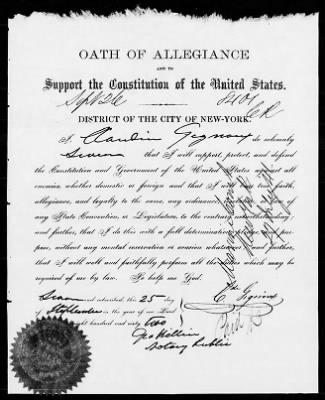 OATH OF ALLEGIANCE
AND TO
Support the Constitution of the United States.
Sept 26
DISTRICT OF THE CITY OF NEW-YORK.
I Claudin Gignoux do solemnly
Swear that I will support, protect, and defend
the Constitution and Government of the United States against all
enemies, whether domestic or foreign and that I will bear true faith,
allegiance, and loyalty to the same, any ordinance,
any State Convention, or Legislature, to the contrary notwithstanding
and further, that I do this with a full determination
pose, without any mental reservation or evasion whatsoever and further,
that I will well and faithfully perform all the duties which may be
required of me by law. So help me God.
Sworn and subscribed, this 25 day
of September in the year of our Lord
eight hundred and sixty two
C. Gignoux
Notary Public